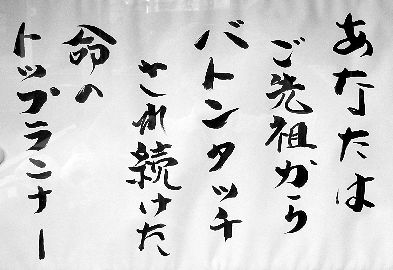 あなたは
ご先祖から
バトンタッチ
され続けた
命の
トップランナー